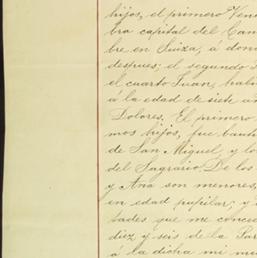 hijos, el primero Ven
bra capital del Can
bre en Suiza, á don
despues; el segundo
el cuarto Juan, hab
á la edad de siete a
Dolores. El primero
mos hijos, fue baut
de San Miguel y lo
del Sagrario. De los
y Ana son menores,
en edad pupilar; y
tades que me conce
diez y seis de la Par
á la dicha mi mu